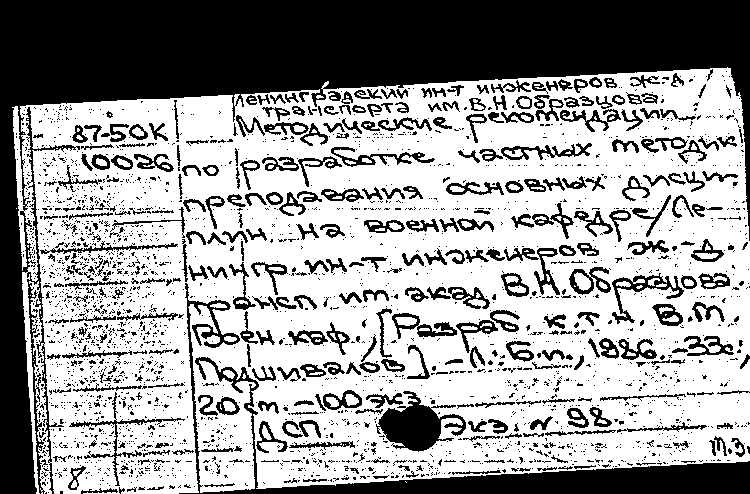 Ленинградский ин-т инженеров ж-д.
транспорта им. В.Н.Образцова.
87-50К Методические рекомендации
10026 по разработке частных методик
преподавания основных дисци-
плин на военной кафедре/Ле-
нингр. ин-т инженеров ж.-д.
трансп. им. акад. В.Н.Образцова.
Воен. каф.; [Разраб. к.т.н. В.М.
Подшивалов]. – Л.: Б.и., 1986. – 33с.;
20 см. – 100 экз.
ДСП. Экз. № 98.
Т.З.
8